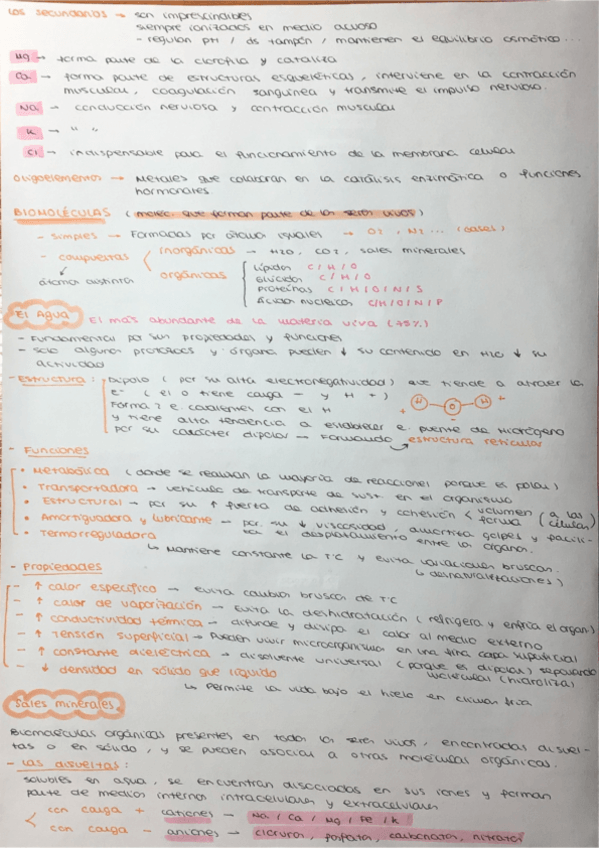 Los secundarios → son imprescindibles
siempre ionizados en medio acuoso
- regulan pH / ds tampón / mantienen el equilibrio osmótico ...
Mg → forma parte de la clorofila y cataliza
Ca → forma parte de estructuras esqueléticas, interviene en la contracción
muscular, coagulación sanguínea y transmite el impulso nervioso.
Na → conducción nerviosa y contracción muscular
K → " "
Cl → indispensable para el funcionamiento de la membrana celular
Oligoelementos → Metales que colaboran en la catálisis enzimática o funciones
hormonales.
BIOMOLÉCULAS (molec. que forman parte de los seres vivos)
- simples → Formadas por átomos iguales → O2, N2 ... (gases)
- compuestas < inorgánicas → H2O, CO2, sales minerales
átomos distintos
orgánicas
Lípidos C/H/O
Glúcidos C/H/O
Proteínas C/H/O/N/S
Ácidos nucleicos C/H/O/N/P
El Agua El más abundante de la materia viva (75%)
- Fundamental por sus propiedades y funciones
- Solo algunos protozoos y órganos pueden ↓ su contenido en H2O ↓ su
actividad
- Estructura: Dipolo (por su alta electronegatividad) que tiende a atraer los
e- (el O tiene carga - y H +)
Forma 2 e. covalentes con el H
y tiene alta tendencia a establecer e. puente de hidrógeno
por su carácter dipolar → Formando estructura reticular
H O H
+ - +
- Funciones
• Metabólica (donde se realizan la mayoría de reacciones porque es polar)
• Transportadora → vehículo de transporte de sust. en el organismo
• Estructural → por su ↑ fuerza de adhesión y cohesión < volumen forma (a las células)
• Amortiguadora y lubricante → por su ↓ viscosidad, amortigua golpes y facili-
ta el desplazamiento entre los órganos.
• Termorreguladora
↳ Mantiene constante la TªC y evita variaciones bruscas.
↳ desnaturalizaciones)
- Propiedades
- ↑ calor específico → evita cambios bruscos de TªC
- ↑ calor de vaporización → Evita la deshidratación (refrigera y enfría el organ)
- ↑ conductividad térmica → difunde y disipa el calor al medio externo
- ↑ Tensión superficial → Pueden vivir microorganismos en una fina capa superficial
- ↑ constante dieléctrica → disolvente universal (porque es dipolar) separando
moléculas (hidroliza)
- ↓ densidad en sólido que líquido
↳ Permite la vida bajo el hielo en climas fríos
Sales minerales
Biomoléculas orgánicas presentes en todos los seres vivos, encontradas disuel-
tas o en sólido, y se pueden asociar a otras moléculas orgánicas.
- Las disueltas:
solubles en agua, se encuentran disociadas en sus iones y forman
parte de medios internos intracelulares y extracelulares
< con carga + cationes → Na / Ca / Mg / Fe / K
con carga - aniones → cloruros, fosfatos, carbonatos, nitratos